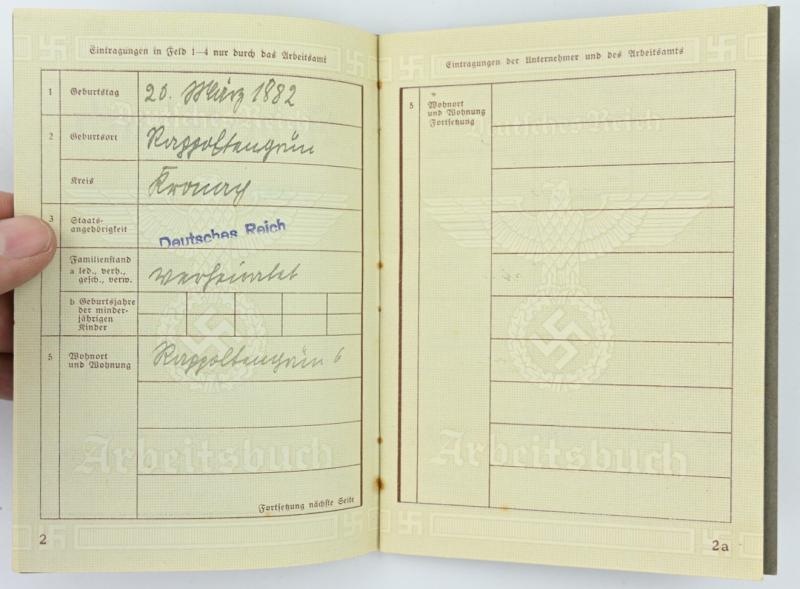 Eintragungen in Feld 1–4 nur durch das Arbeitsamt
1 Geburtstag 20. März 1882
2 Geburtsort Rappoltengrün
Kreis Kronach
3 Staats-
angehörigkeit Deutsches Reich
Familienstand
a led., verh., verheiratet
gesch., verw.
b Geburtsjahre
der minder-
jährigen
Kinder
5 Wohnort Rappoltengrün 6
und Wohnung
Arbeitsbuch
Fortsetzung nächste Seite
2
Eintragungen der Unternehmer und des Arbeitsamts
5 Wohnort
und Wohnung
Fortsetzung
Deutsches Reich
Arbeitsbuch
2a